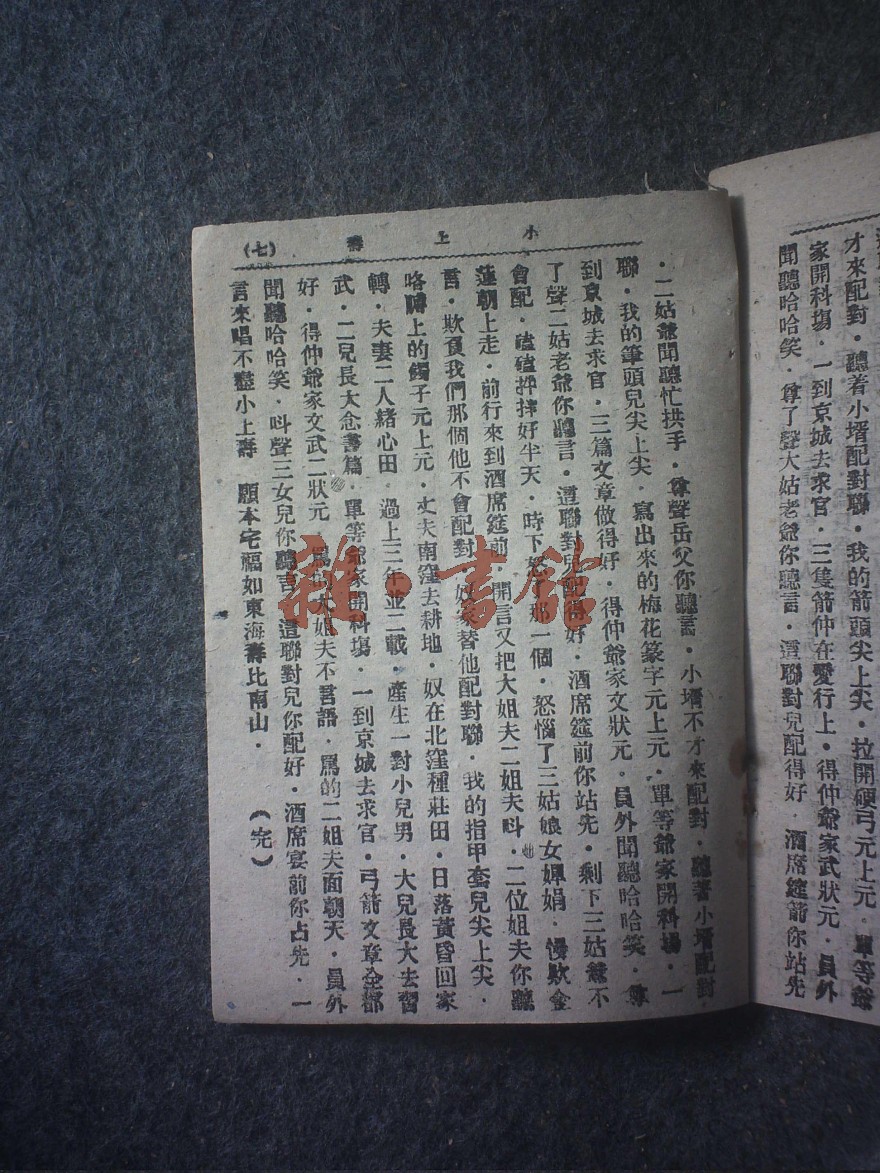 才來配對·聽着小壻配對聯·我的箭頭尖上尖·拉開硬弓元上元·單等爺
家開科塲·一到京城去求官·三隻箭仲在愛行上·得仲爺家武狀元·員外
聞聽哈哈笑·尊了聲大姑老爺你聽言·這聯對兒配得好·酒席筵箭你站先
小上壽
(七)
·二姑爺聞聽忙拱手·尊聲岳父你聽言·小壻不才來配對·聽著小壻配對
聯·我的筆頭兒尖上尖·寫出來的梅花篆字元上元·單等爺家開科塲·一
到京城去求官·三篇文章做得好·得仲爺家文狀元·員外聞聽哈哈笑·尊
了聲二姑老爺你聽言·這聯對兒配得好·酒席筵前你站先·剩下三姑爺不
會配·磕磕拌拌好半天·時下怒了那一個·怒惱了三姑娘女嬋娟·慢欺金
蓮朝上走·前行來到酒席筵前·開言又把大姐夫二姐夫呌·二位姐夫你聽
言·欺負我們那個他不會配對·奴家替他配對聯·我的指甲套兒尖上尖·
咯嘚上的鐲子元上元·丈夫南窪去耕地·奴在北窪種莊田·日落黃昏回家
轉·夫妻二人緒心田·過上三年並二載·產生一對小兒男·大兒長大去習
武·二兒長大念書篇·單等爺家開科塲·一到京城去求官·弓箭文章全都
好·得仲爺家文武二狀元·罵的大姐夫不言語·罵的二姐夫面朝天·員外
聞聽哈哈笑·呌聲三女兒你聽言·這聯對兒你配好·酒席宴前你占先·一
言來唱不盡小上壽 願本宅福如東海壽比南山·
(完)
雜·書館